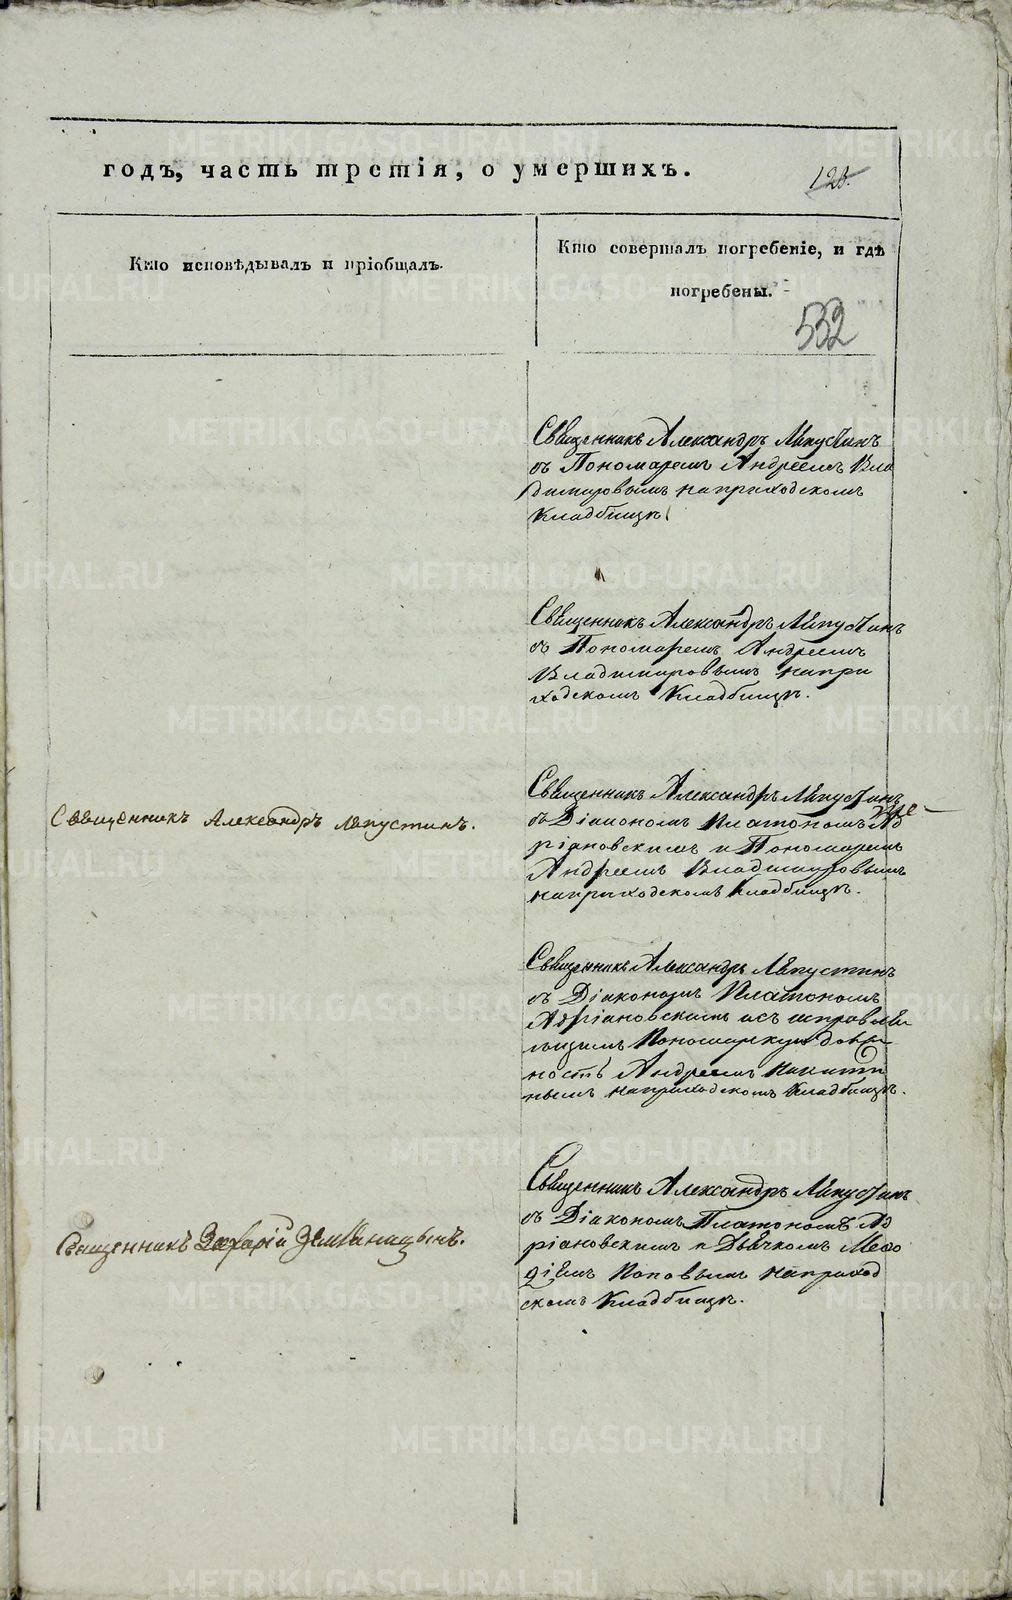 годъ, часть третія, о умершихъ.
128.
Кто исповѣдывалъ и пріобщалъ.
Кто совершалъ погребеніе, и гдѣ
погребены.
532
Священникъ Александръ Лѣпустинъ
съ Пономаремъ Андреемъ Вла
димировымъ на приходскомъ
Кладбищѣ
Священникъ Александръ Лѣпустинъ
съ Пономаремъ Андреемъ
Владимировымъ на при
ходскомъ Кладбищѣ.
Священникъ Александръ Лѣпустинъ
съ Діакономъ Платономъ Ад
ріановскимъ и Пономаремъ
Андреемъ Владимировымъ
на приходскомъ Кладбищѣ.
Священникъ Александръ Лѣпустинъ.
Священникъ Александръ Лѣпустинъ
съ Діакономъ Платономъ
Адріановскимъ и съ исправляю
щимъ Пономарскую долж
ность Андреемъ Никити
нымъ на приходскомъ Кладбищѣ.
Священникъ Александръ Лѣпустинъ
съ Діакономъ Платономъ Ад
ріановскимъ и Дьячкомъ Меѳо
діемъ Поповымъ на приход
скомъ Кладбищѣ.
Священникъ Захарій Земляницынъ.
METRIKI.GASO-URAL.RU